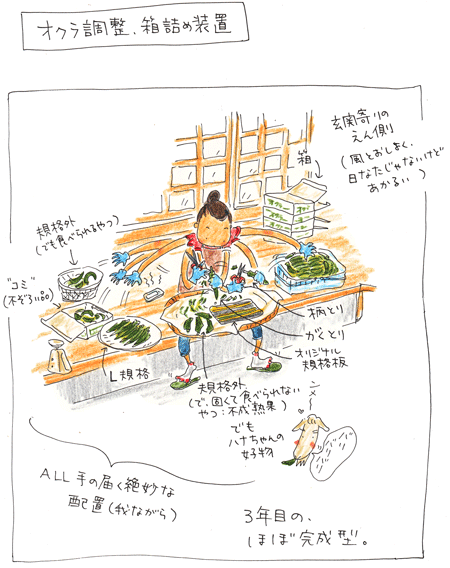 オクラ調整、箱詰め装置
玄関寄りの
えん側
(風とおしよく、
日なたじゃないけど
あかるい)
箱
規格外
(でも食べられるやつ)
"コミ"
(不ぞろい品)
L規格
柄とり
がくとり
オリジナル
規格板
規格外
(で、固くて食べられない
やつ:不成熟果)
でも
ハナちゃんの
好物
ンメ〜
ALL 手の届く絶妙な
配置(我ながら)
3年目の、
ほぼ完成型。